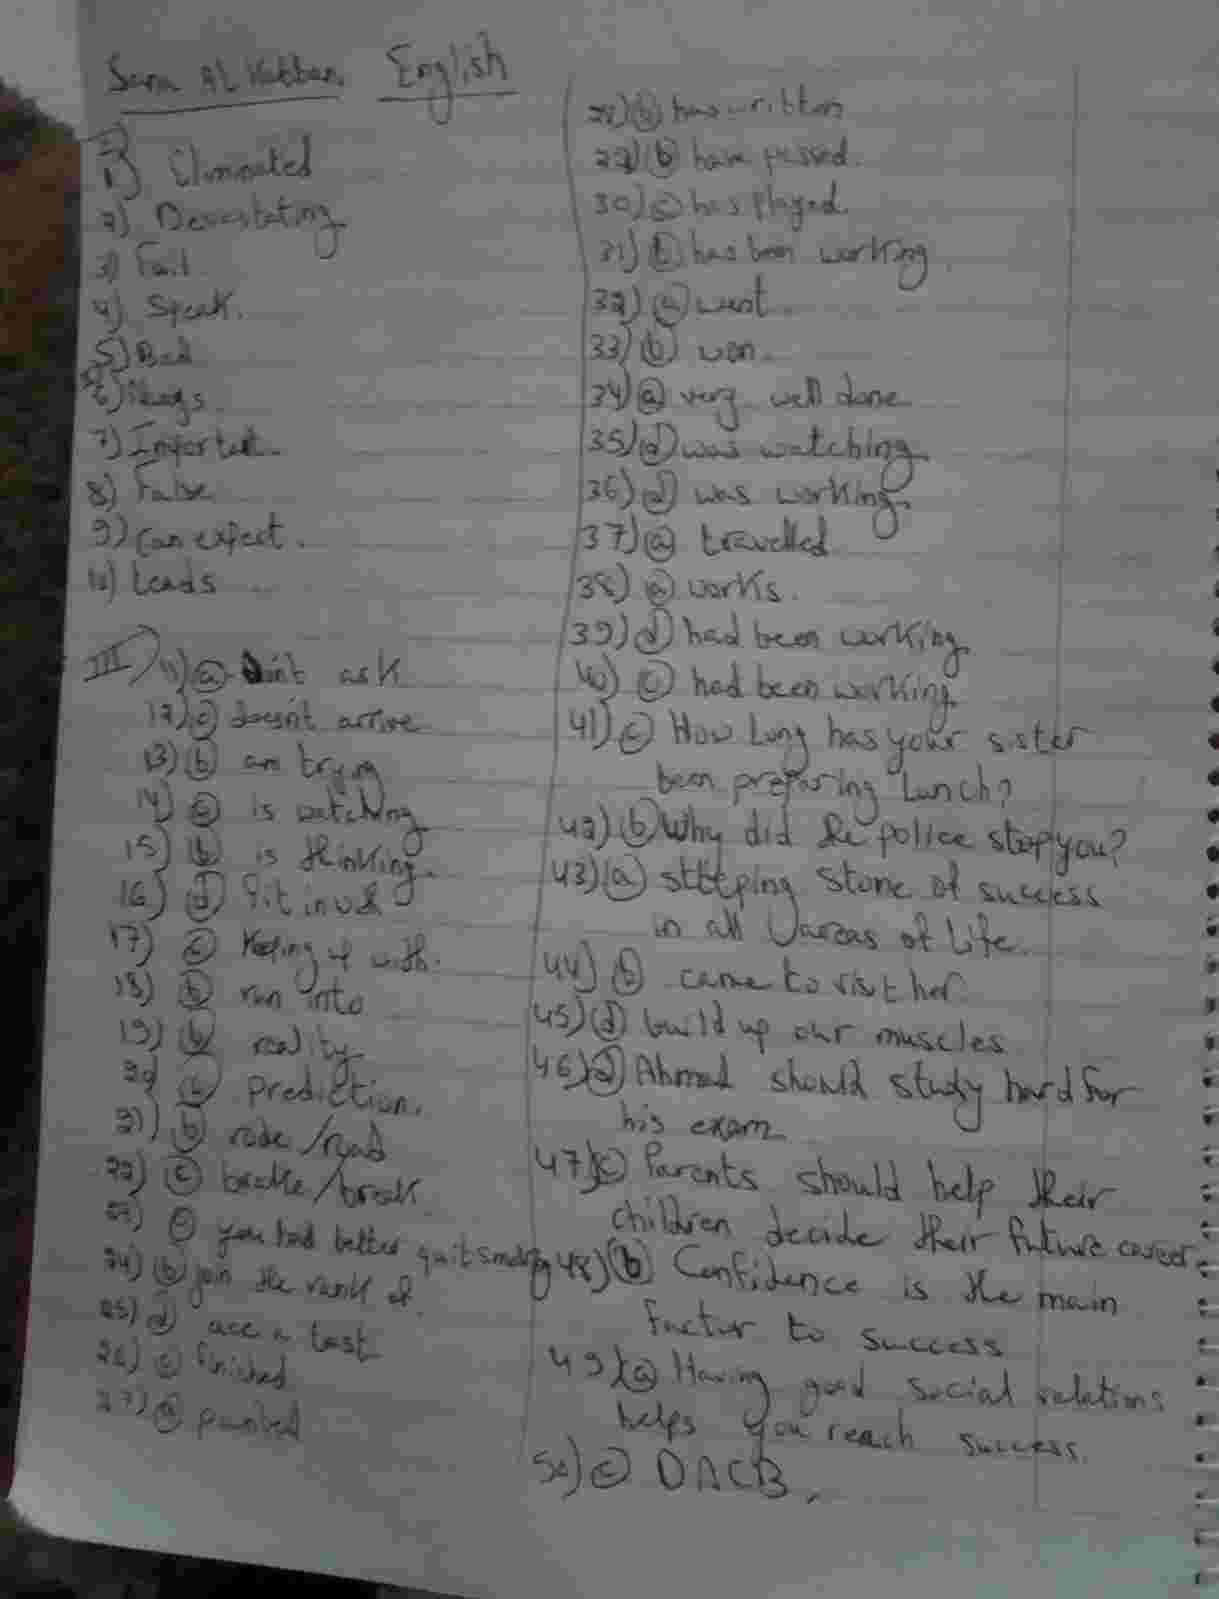 English
1) Eliminated
2) Devastating
3) Fail
4) Speak.
5) Bad
6)
7) Important.
8) False
9) Can expect.
10) Leads
III) 11) a ask
12) c doesn't arrive
13) b am trying
14) c is watching
15) b is thinking.
16) d fit in
17) c Keeping up with.
18) b run into
19) b reality
20 b prediction.
21) b rode / road
22) c brake / break
23) c you had better quit smoking
24) b join the rank of
25) d ace a test
26) c finished
27) a painted
28) b has written
29) b have passed.
30) c has played.
31) b has been working
32) a went
33) b won.
34) a very well done
35) d was watching
36) d was working.
37) a travelled
38) a works.
39) d had been working
40) c had been working
41) c How long has your sister
been preparing Lunch?
42) b Why did the police stop you?
43) a stone of success
in all areas of Life.
44) b came to visit her
45) d build up our muscles
46) d Ahmad should study hard for
his exam
47) c Parents should help their
children decide their future career
48) b Confidence is the main
factor to success
49) a Having good social relations
helps you reach success.
50) c DACB.